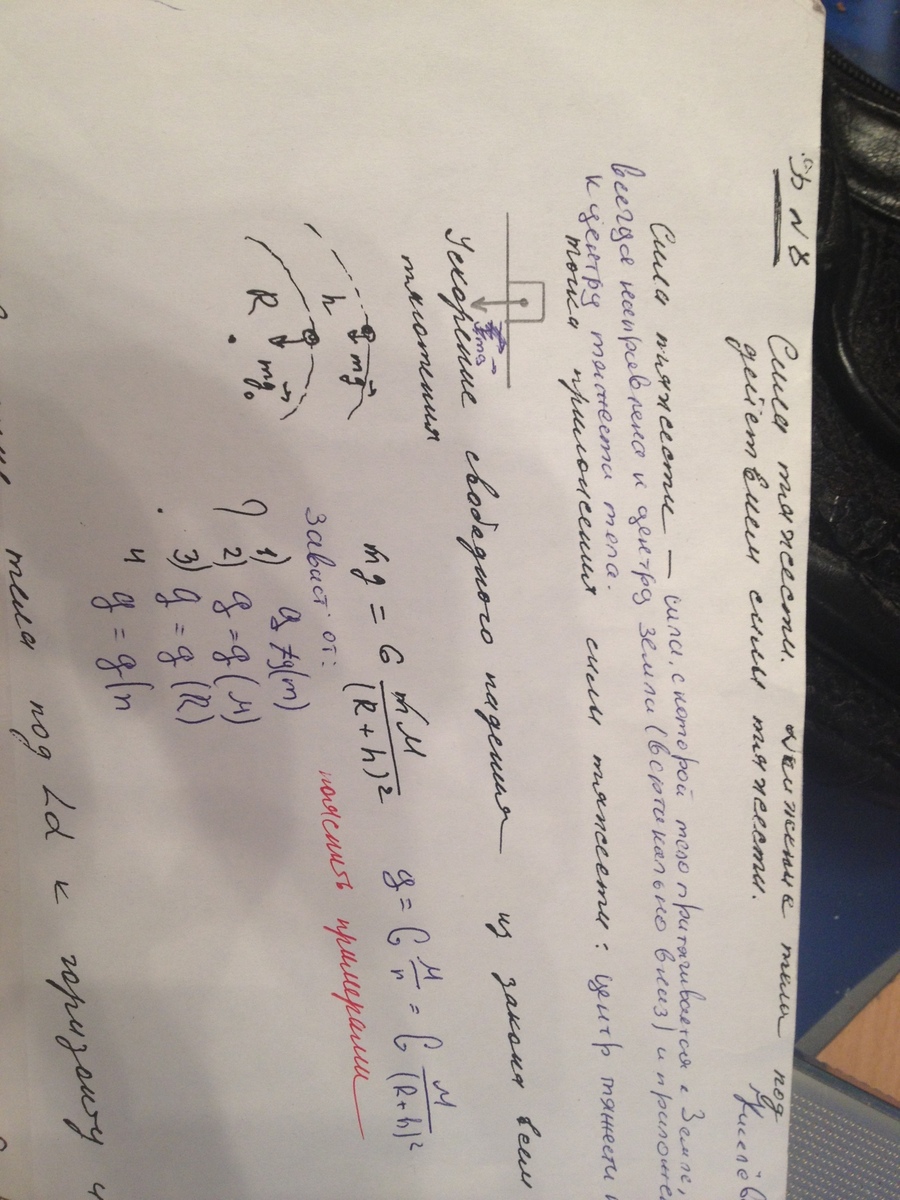 Эь № 8
Сила тяжести. Движение тела под
действием силы тяжести.
Киселёв
Сила тяжести — сила, с которой тело притягивается к Земле,
всегда направлена к центру Земли (вертикально вниз) и приложе
к центру тяжести тела.
точка приложения силы тяжести: центр тяжести
Ускорение свободного падения из закона всем
тяготения
h
mg
R
mg₀
mg = G mM/(R+h)²
g = G M/r = G M/(R+h)²
Завист от:
пояснить примерами
1) g ≠ g(m)
? 2) g = g(M)
3) g = g(R)
4 g = g(h
тела под ∠α к горизонту